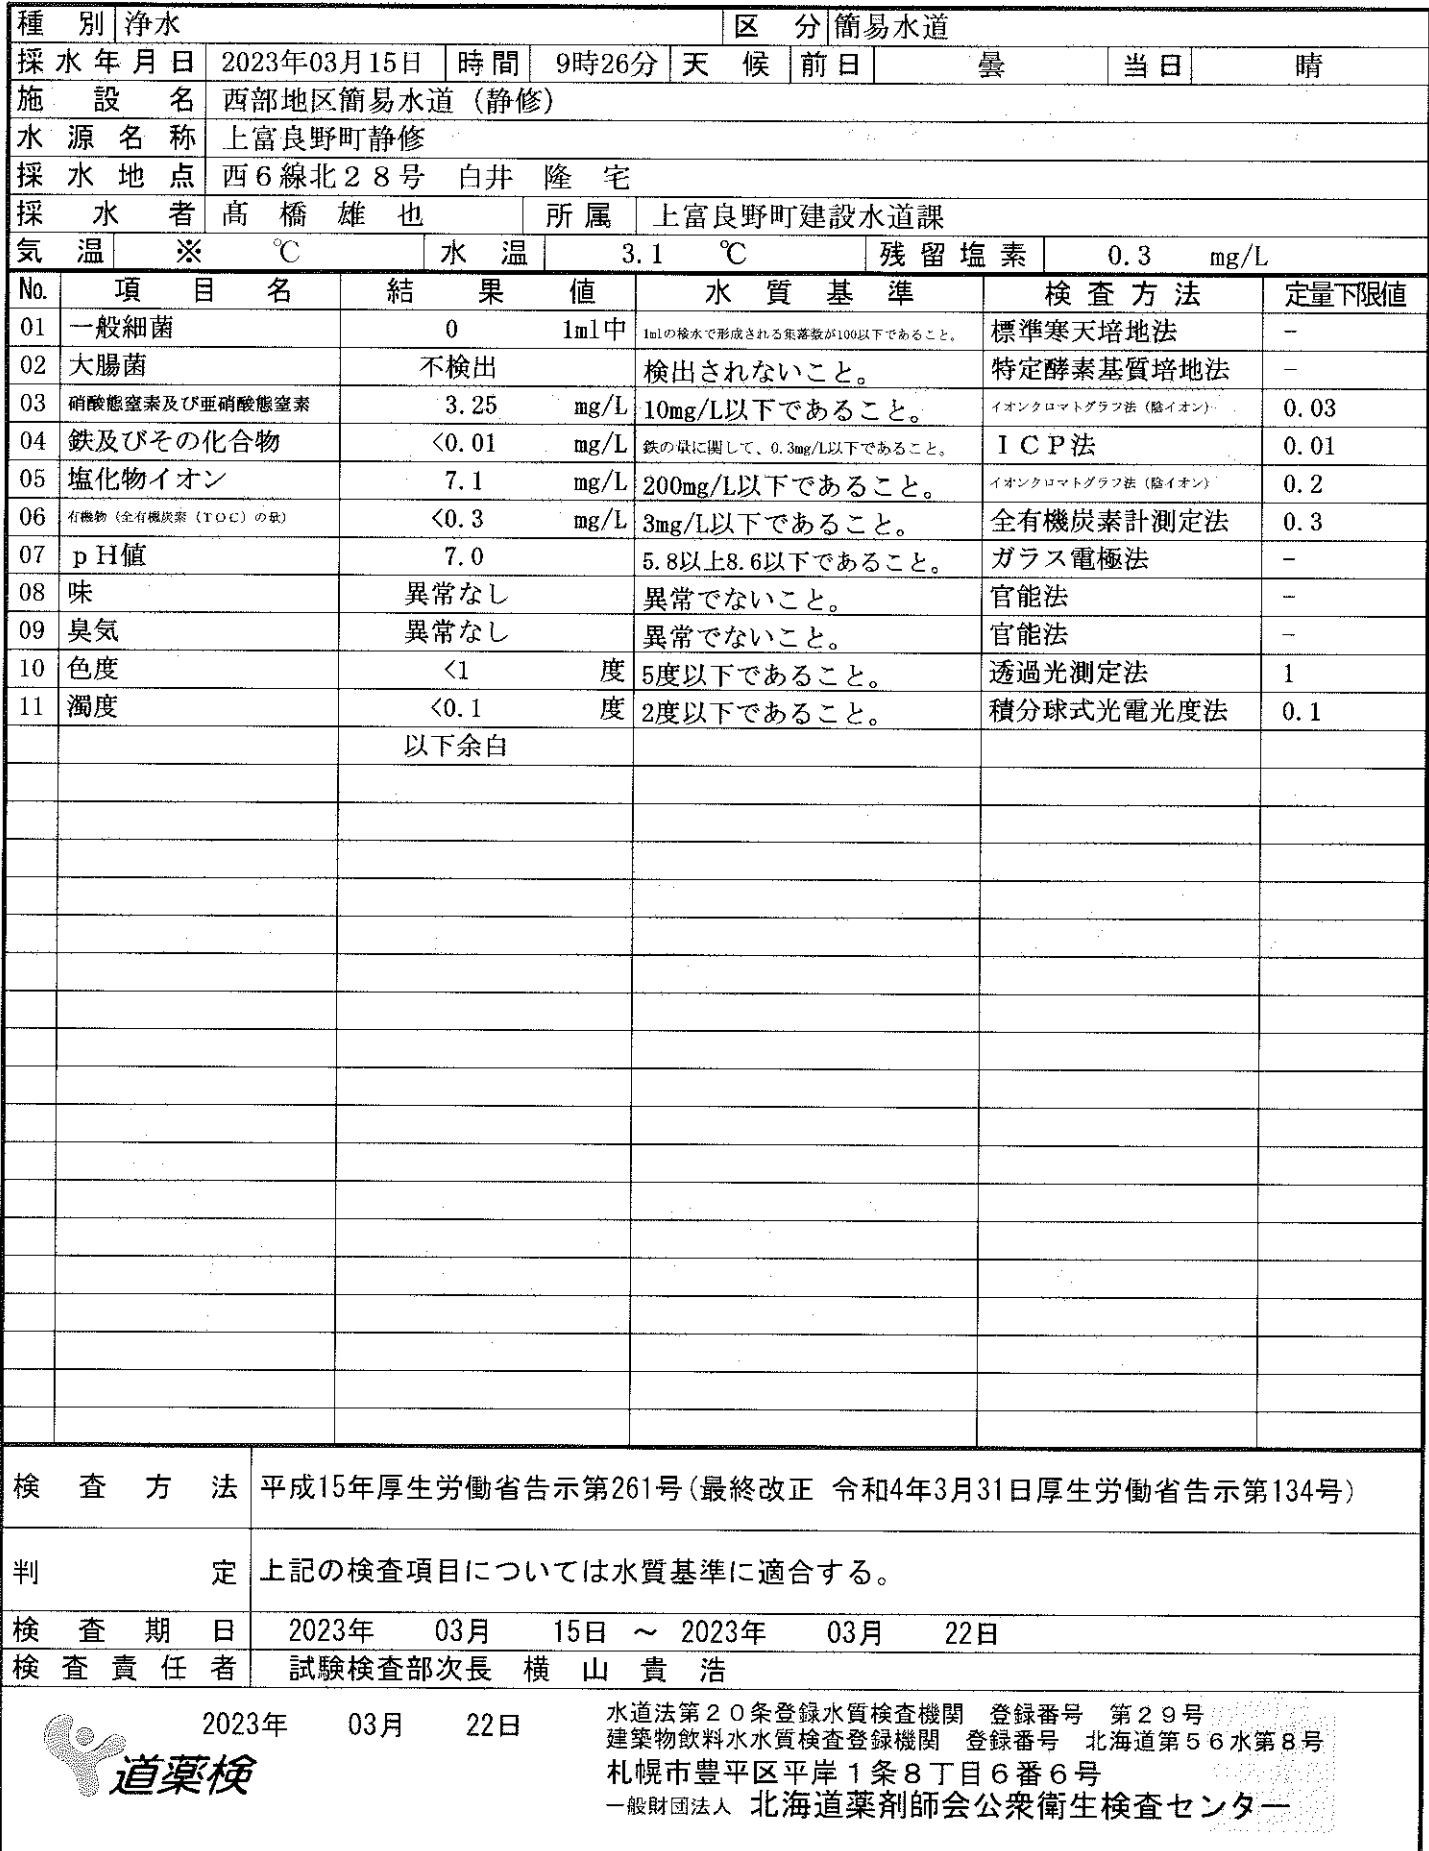 種別 浄水 区分 簡易水道
採水年月日 2023年03月15日 時間 9時26分 天候 前日 曇 当日 晴
施設名 西部地区簡易水道（静修）
水源名称 上富良野町静修
採水地点 西6線北28号 白井 隆 宅
採水者 髙橋雄也 所属 上富良野町建設水道課
気温 ※ ℃ 水温 3.1 ℃ 残留塩素 0.3 mg/L
No. 項目名 結果値 水質基準 検査方法 定量下限値
01 一般細菌 0 1ml中 1mlの検水で形成される集落数が100以下であること。 標準寒天培地法 －
02 大腸菌 不検出 検出されないこと。 特定酵素基質培地法 －
03 硝酸態窒素及び亜硝酸態窒素 3.25 mg/L 10mg/L以下であること。 イオンクロマトグラフ法（陰イオン） 0.03
04 鉄及びその化合物 <0.01 mg/L 鉄の量に関して、0.3mg/L以下であること。 ICP法 0.01
05 塩化物イオン 7.1 mg/L 200mg/L以下であること。 イオンクロマトグラフ法（陰イオン） 0.2
06 有機物（全有機炭素（TOC）の量） <0.3 mg/L 3mg/L以下であること。 全有機炭素計測定法 0.3
07 pH値 7.0 5.8以上8.6以下であること。 ガラス電極法 －
08 味 異常なし 異常でないこと。 官能法 －
09 臭気 異常なし 異常でないこと。 官能法 －
10 色度 <1 度 5度以下であること。 透過光測定法 1
11 濁度 <0.1 度 2度以下であること。 積分球式光電光度法 0.1
以下余白
検査方法 平成15年厚生労働省告示第261号(最終改正 令和4年3月31日厚生労働省告示第134号)
判定 上記の検査項目については水質基準に適合する。
検査期日 2023年 03月 15日 ～ 2023年 03月 22日
検査責任者 試験検査部次長 横山貴浩
水道法第20条登録水質検査機関 登録番号 第29号
2023年 03月 22日
建築物飲料水水質検査登録機関 登録番号 北海道第56水第8号
道薬検
札幌市豊平区平岸1条8丁目6番6号
一般財団法人 北海道薬剤師会公衆衛生検査センター